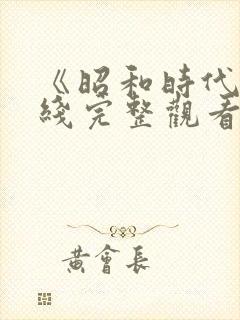 《昭和時代
綫完整觀看
黃會長